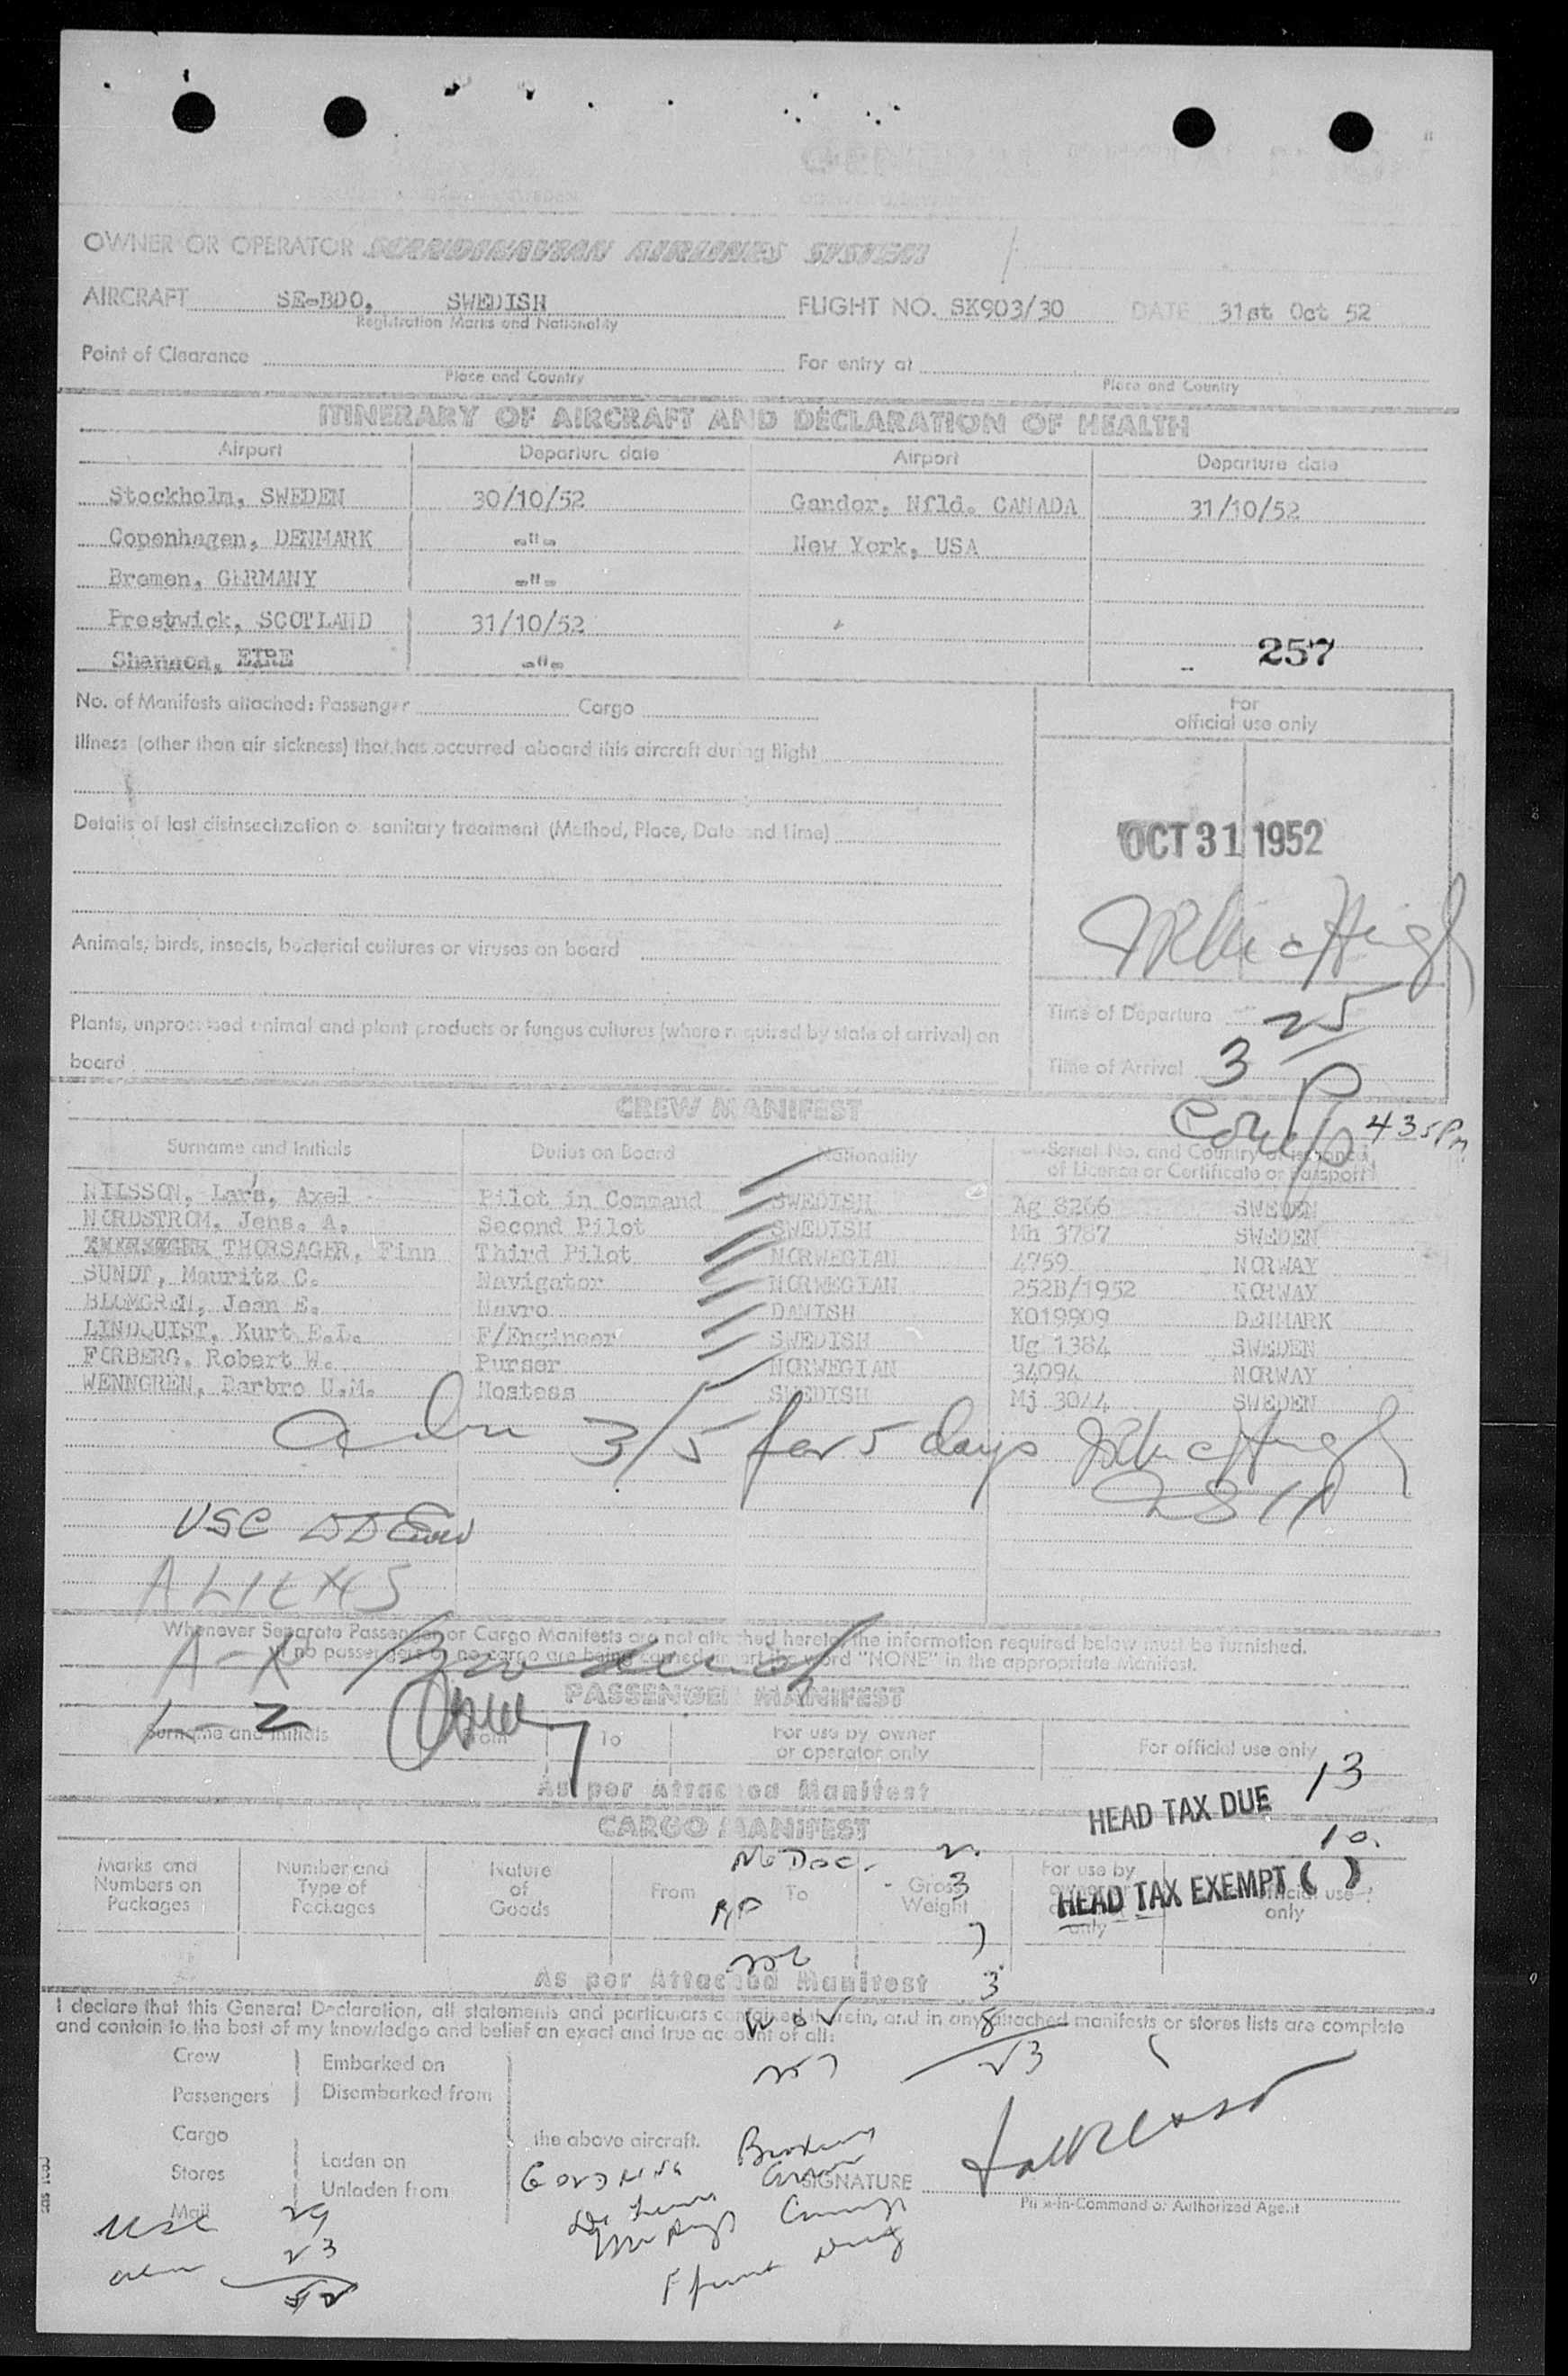 OWNER OR OPERATOR SCANDINAVIAN AIRLINES SYSTEM
AIRCRAFT SE-BDO, SWEDISH FLIGHT NO. SK903/30 DATE 31st Oct 52
Registration Marks and Nationality
Point of Clearance For entry at
Place and Country Place and Country
ITINERARY OF AIRCRAFT AND DECLARATION OF HEALTH
Airport Departure date Airport Departure date
Stockholm, SWEDEN 30/10/52 Gander, Nfld. CANADA 31/10/52
Copenhagen, DENMARK -"- New York, USA
Bremen, GERMANY -"-
Prestwick, SCOTLAND 31/10/52
Shannon, EIRE -"- 257
No. of Manifests attached: Passenger Cargo
For
official use only
Illness (other than air sickness) that has occurred aboard this aircraft during flight
Details of last disinsectization or sanitary treatment (Method, Place, Date and Time)
OCT 31 1952
Animals, birds, insects, bacterial cultures or viruses on board
Plants, unprocessed animal and plant products or fungus cultures (where required by state of arrival) on
board
Time of Departure
Time of Arrival 3 25 P
435 Pm
CREW MANIFEST
Surname and Initials Duties on Board Nationality Serial No. and Country of issuance
of Licence or Certificate or Passport
NILSSON, Lars, Axel Pilot in Command SWEDISH Ag 8266 SWEDEN
NORDSTROM, Jens. A. Second Pilot SWEDISH Mh 3787 SWEDEN
THORSAGER, Finn Third Pilot NORWEGIAN 4759 NORWAY
SUNDT, Mauritz C. Navigator NORWEGIAN 252B/1952 NORWAY
BLOMGREN, Jean E. Navro DANISH K019909 DENMARK
LINDQUIST, Kurt E.L. F/Engineer SWEDISH Ug 1384 SWEDEN
FORBERG, Robert W. Purser NORWEGIAN 34094 NORWAY
WENNGREN, Barbro U.M. Hostess SWEDISH Mj 3044 SWEDEN
adm 3/5 for 5 days
USC
ALIENS
Whenever Separate Passenger or Cargo Manifests are not attached hereto, the information required below must be furnished.
If no passengers or no cargo are being carried insert the word "NONE" in the appropriate Manifest.
PASSENGER MANIFEST
Surname and Initials From To For use by owner
or operator only For official use only
As per Attached Manifest
HEAD TAX DUE 13
CARGO MANIFEST
10.
HEAD TAX EXEMPT ( )
Marks and
Numbers on
Packages
Number and
Type of
Packages
Nature
of
Goods
From To
Gross
Weight
For use by
only
official use
only
No Doc. 2
3
RP
7
3
8
23
As per Attached Manifest
I declare that this General Declaration, all statements and particulars contained therein, and in any attached manifests or stores lists are complete
and contain to the best of my knowledge and belief an exact and true account of all:
Crew Embarked on
Passengers Disembarked from
Cargo the above aircraft.
Stores Laden on
Mail Unladen from
SIGNATURE
Pilot-in-Command or Authorized Agent
USC 29
alien 23
52